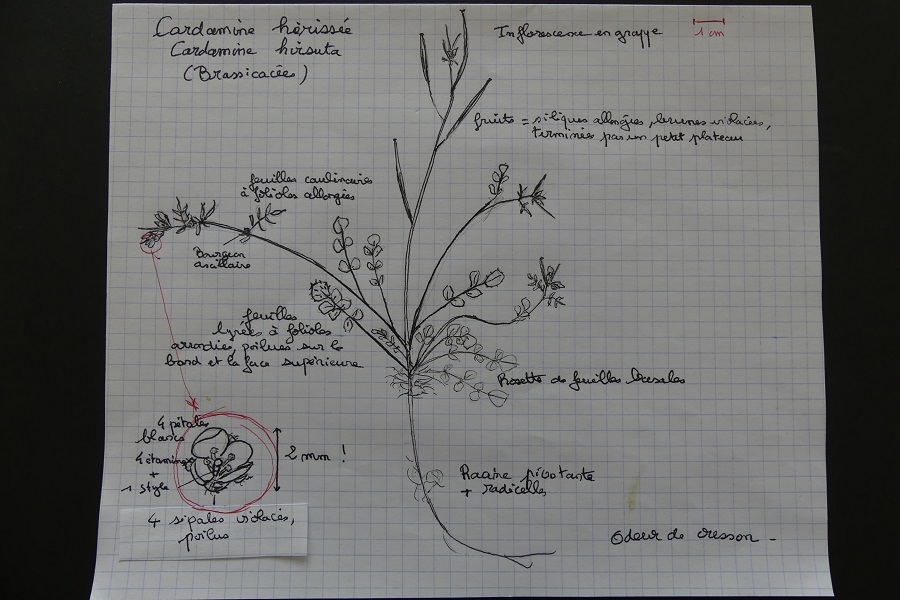 Cardamine hérissée
Cardamine hirsuta
(Brassicacées)
Inflorescence en grappe
1 cm
fruits = siliques allongées, brunes violacées,
terminés par un petit plateau
feuilles caulinaires
à folioles allongées
Bourgeon
axillaire
feuilles
lyrées à folioles
arrondies, poilues sur le
bord et la face supérieure
Rosette de feuilles basales
4 pétales
blancs
4 étamines
+
1 style
2 mm !
4 sépales violacés,
poilus
Racine pivotante
+ radicelles
Odeur de cresson -